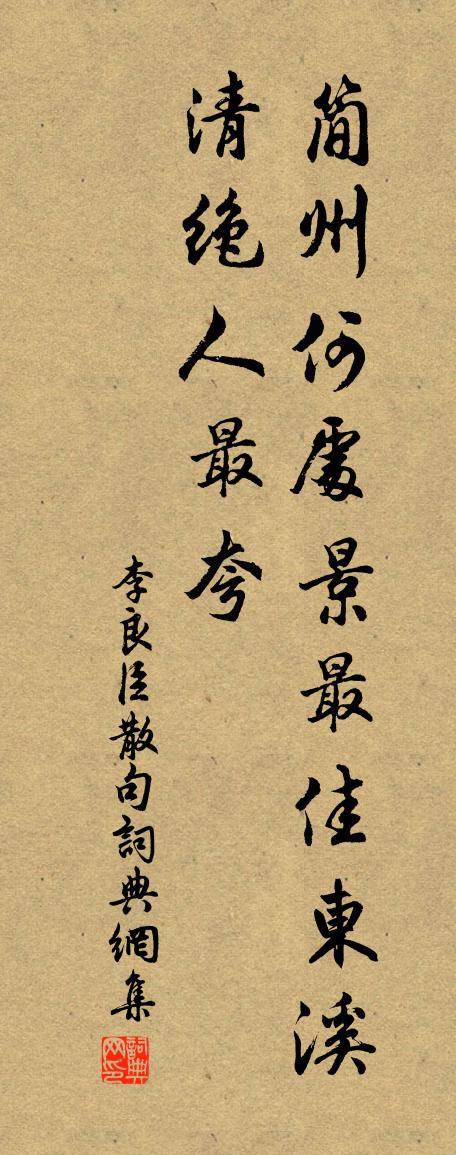 簡州何處景最佳東溪
清絕人最夸
李良臣散句詞典網集
詞典网印